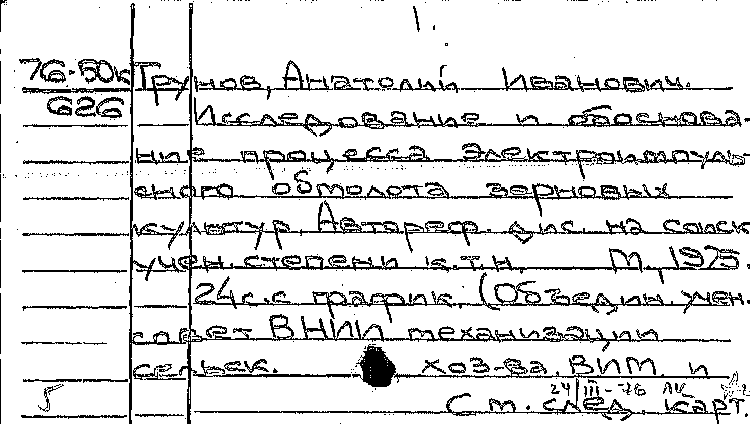 1.
76-50к Трунов, Анатолий Иванович.
626 Исследование и обоснова-
ние процесса электроимпуль
сного обмолота зерновых
культур. Автореф. дис. на соиск
учен. степени к.т.н. М., 1975.
24 с. с график. (Объедин. учен.
совет ВНИИ механизации
сельск. хоз-ва. ВИМ. и
24/III-76
5 См. след. карт.